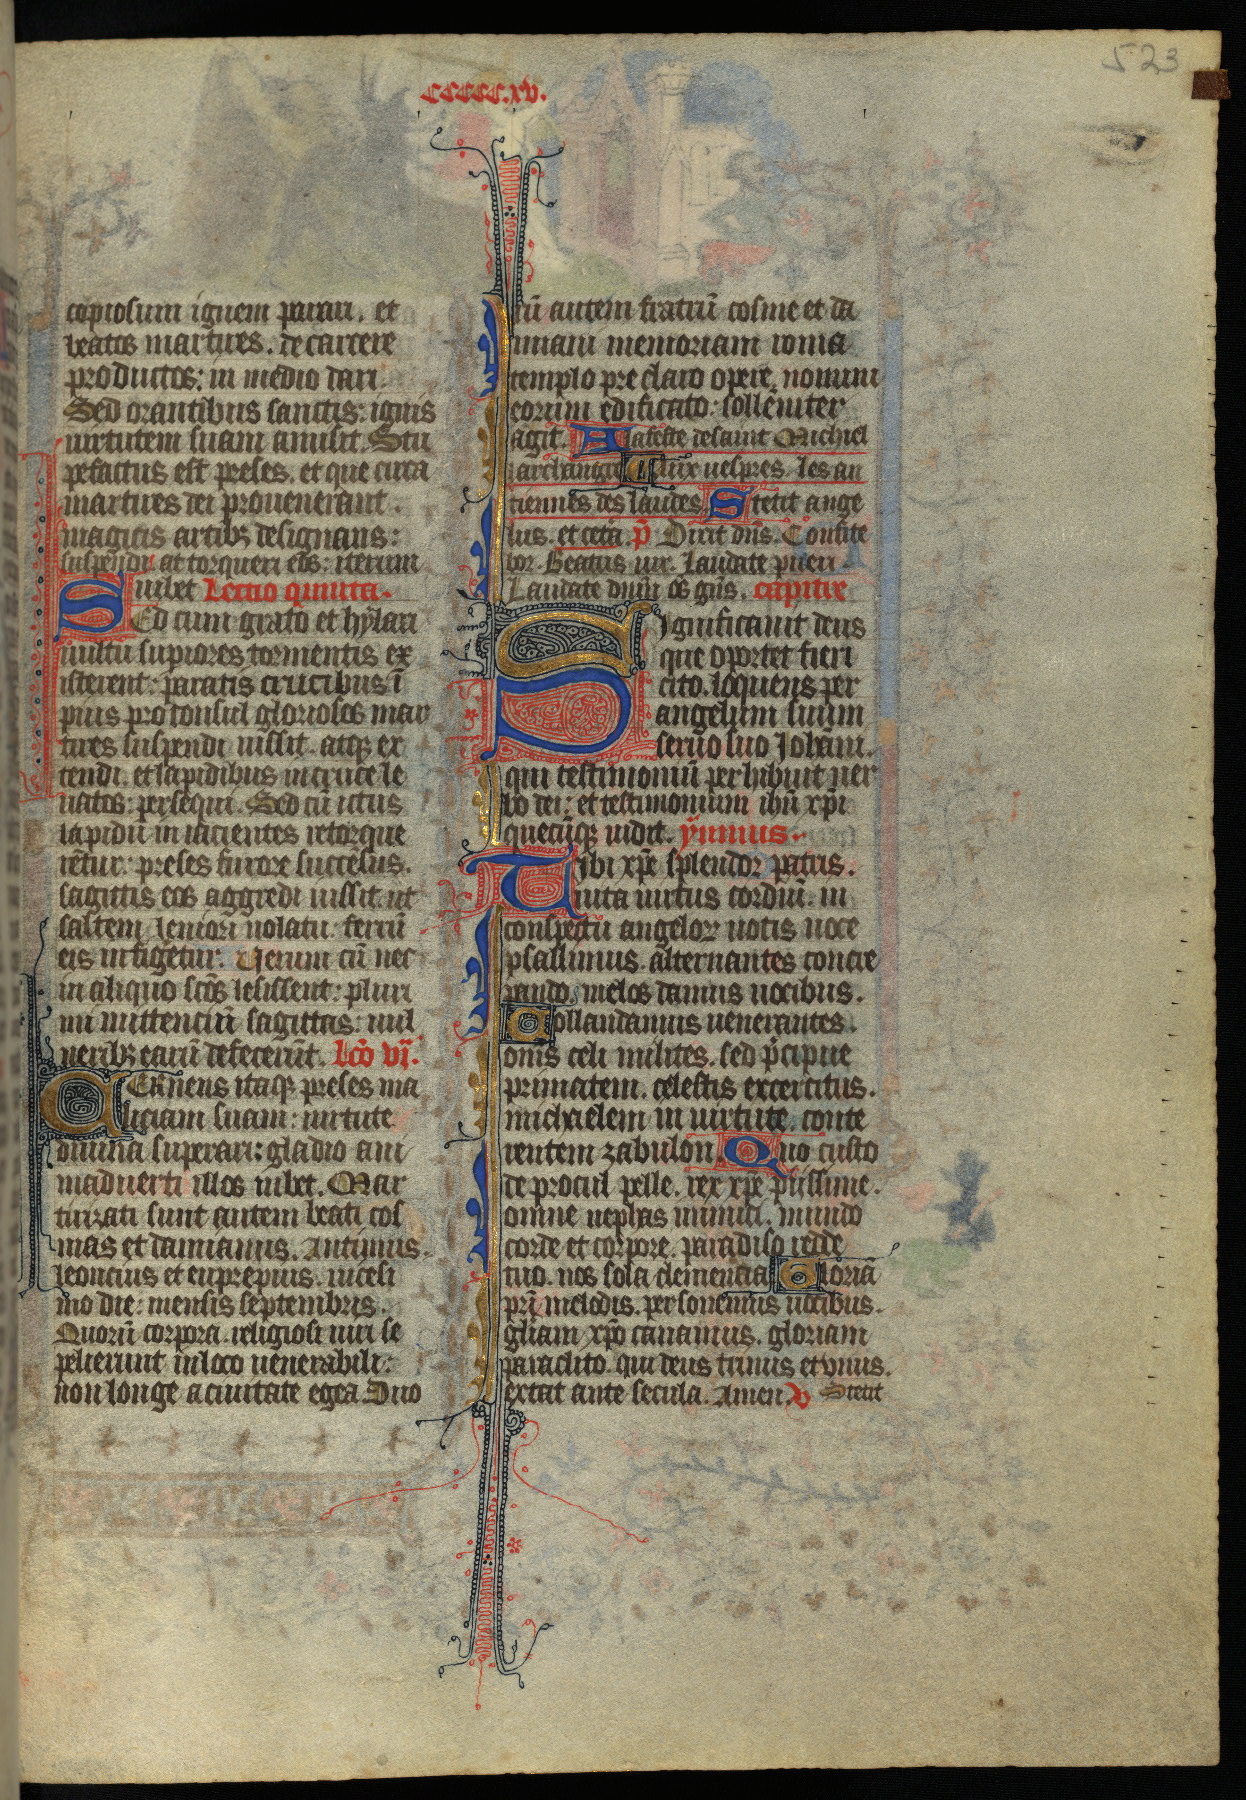 523
ccccc.xv.
copiosum ignem parari. et
beatos martires. de carcere
productos: in medio dari.
Sed orantibus sanctis: ignis
uirtutem suam amisit. Stu
pefactus est preses. et que circa
martires dei prouenerant.
magicis artibꝫ designans:
suspendi at torqueri eos: iterum
iubet Lectio quinta.
Sed cum grato et hylari
uultu supiores tormentis ex
isterent: paratis crucibus ī
pius proconsul gloriosos mar
tires suspendi iussit. atqꝫ ex
tendi. et lapidibus in cruce le
uatos: persequi. Sed cū ictus
lapidū in iacientes retorque
rētur: preses furore succēsus.
sagittis eos aggredi iussit. ut
saltem leuiori uolatu: ferrū
eis infigetur. Uerum cū nec
in aliquo scōs lesissent: pluri
mi mittenciū sagittas: uul
neribꝫ earū defecerūt. lcō vī.
Cernens itaqꝫ preses ma
liciam suam: uirtute
diuina superari: gladio ani
maduerti illos iubet. Mar
tirizati sunt autem beati cos
mas et damianus. Antimus.
leoncius et euprepius. uicesi
mo die: mensis septembris.
Quorū corpora. religiosi uiri se
pelierunt in loco uenerabili:
non longe a ciuitate egea Duo
rū autem fratrū cosme et da
miani memoriam roma
templo pre claro opere. nomini
eorum edificato: solleniter
agit. A la feste de saint Michiel
larchangre Aux uespres. les an
tiennes des laudes. Stetit ange
lus. et cetā. p̄ Dixit dn̄s. Confite
bor. Beatus uir. Laudate pueri.
Laudate dnūī oēs gn̄s. capitre
Significauit deus
que oportet fieri
cito. loquens per
angelum suum
seruo suo Johāni.
qui testimoniū perhibuit uer
bo dei: et testimonium ihū xp̄i
quecūqꝫ uidit. ymnus.
Tibi xp̄e splendor patris.
uita uirtus cordiū. in
conspectu angeloꝝ uotis uoce
psallimus. alternantes concre
pando. melos damus uocibus.
Collaudamus uenerantes.
om̄s celi milites. sed p̄cipue
primatem. celestis excercitus.
michaelem in uirtute. conte
rentem zabulon. Quo custo
de procul pelle. rex xp̄e piissime.
omne nephas inimici. mundo
corde et corpore. paradiso redde
tuo. nos sola clemencia Gloriā
pr̄i melodis. personemus uocibus.
gliām xp̄o canamus. gloriam
paraclito. qui deus trinus et vnus.
extat ante secula. Amen. v Stetit